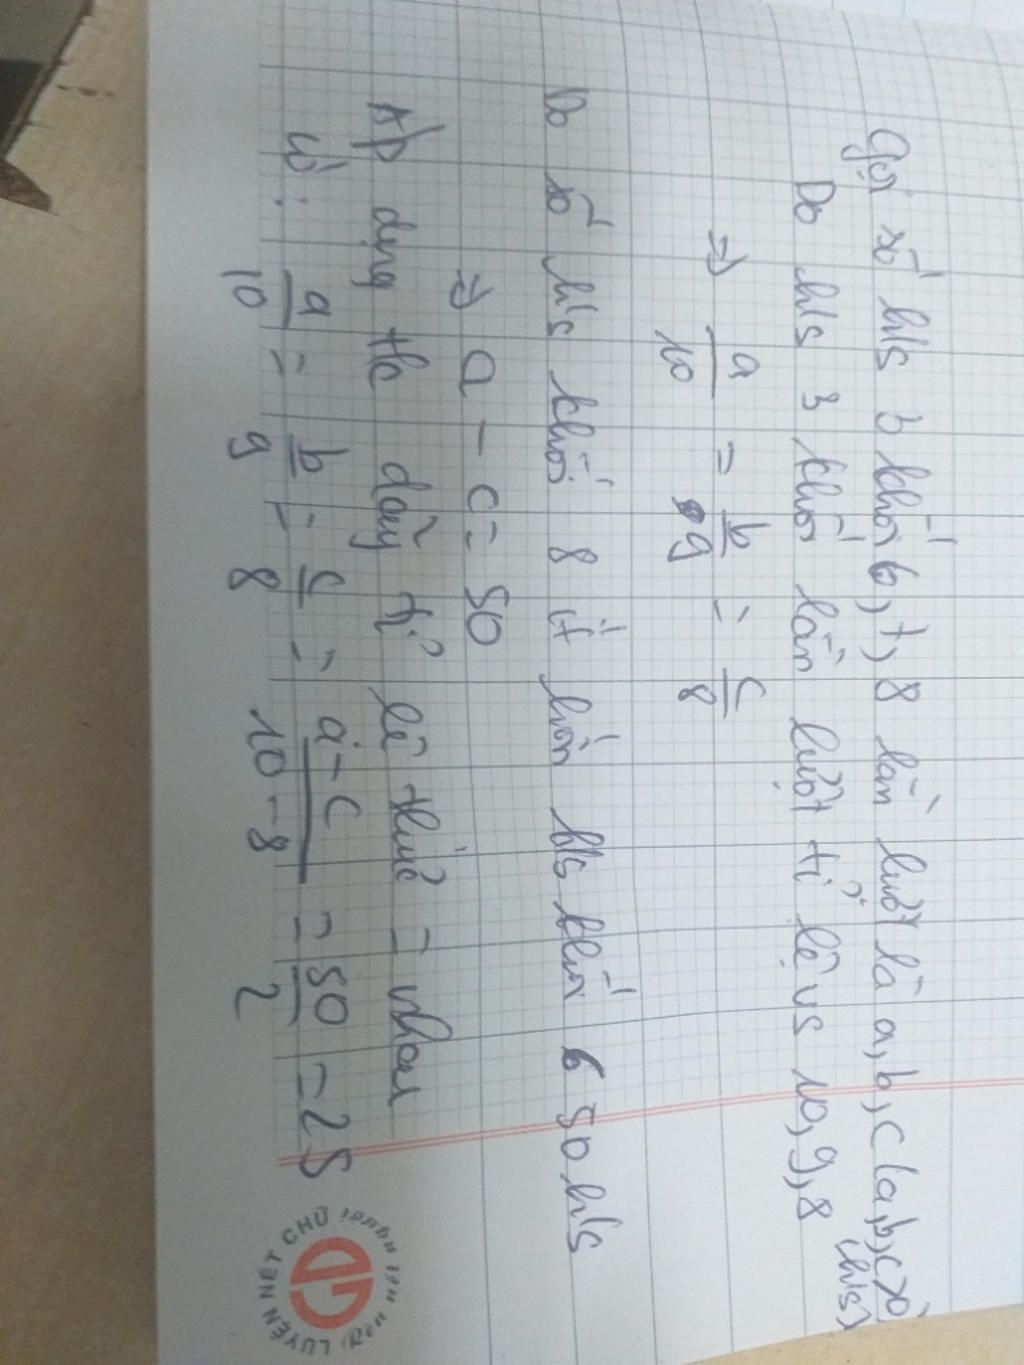 Gọi số h/s 3 khối 6, 7, 8 lần lượt là a, b, c (a, b, c > 0)
(h/s)
Do h/s 3 khối lần lượt tỉ lệ vs 10, 9, 8
⇒ a/10 = b/9 = c/8
Do số h/s khối 8 ít hơn h/s khối 6 50 h/s
⇒ a - c = 50
Áp dụng t/c dãy tỉ lê thức = nhau
có: a/10 = b/9 = c/8 = a-c/10-8 = 50/2 = 25
LUYỆN NÉT CHỮ
RÈN